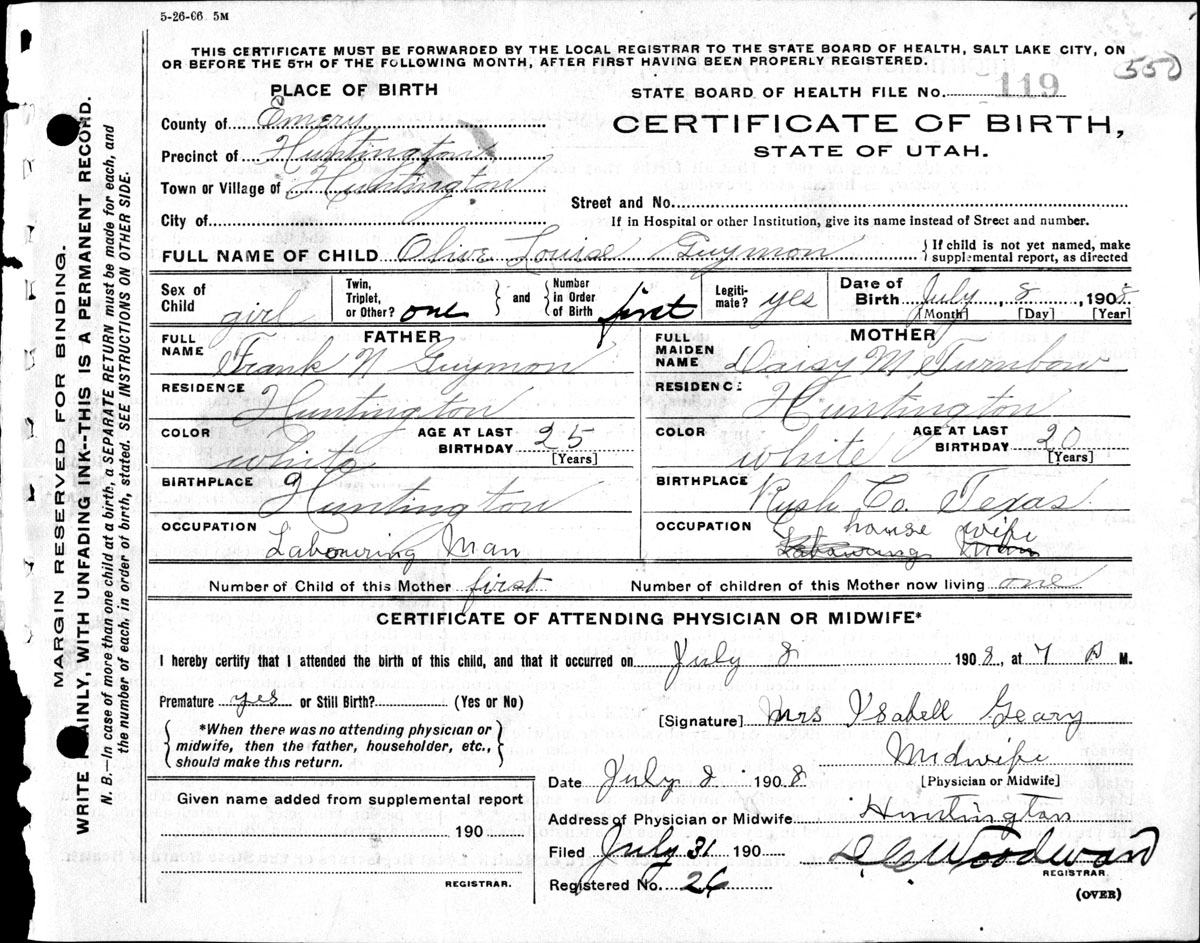 5-26-06 5M
THIS CERTIFICATE MUST BE FORWARDED BY THE LOCAL REGISTRAR TO THE STATE BOARD OF HEALTH, SALT LAKE CITY, ON
OR BEFORE THE 5TH OF THE FOLLOWING MONTH, AFTER FIRST HAVING BEEN PROPERLY REGISTERED.
550
PLACE OF BIRTH
STATE BOARD OF HEALTH FILE No. 119
County of Emery
CERTIFICATE OF BIRTH,
Precinct of Huntington
STATE OF UTAH.
Town or Village of Huntington
Street and No.
City of
If in Hospital or other Institution, give its name instead of Street and number.
FULL NAME OF CHILD Olive Louise Guymon
{If child is not yet named, make
supplemental report, as directed
Sex of Child girl
Twin, Triplet, or Other? one
and
Number in Order of Birth first
Legitimate? yes
Date of Birth July, 8, 1908
[Month] [Day] [Year]
FATHER
FULL NAME Frank N Guymon
RESIDENCE Huntington
COLOR white
AGE AT LAST BIRTHDAY 25
[Years]
BIRTHPLACE Huntington
OCCUPATION Labouring Man
MOTHER
FULL MAIDEN NAME Daisy M Turnbow
RESIDENCE Huntington
COLOR white
AGE AT LAST BIRTHDAY 20
[Years]
BIRTHPLACE Rush Co. Texas
OCCUPATION house wife
Labouring Man
Number of Child of this Mother first
Number of children of this Mother now living one
CERTIFICATE OF ATTENDING PHYSICIAN OR MIDWIFE*
I hereby certify that I attended the birth of this child, and that it occurred on July 8 1908, at 7 A M.
Premature yes or Still Birth? (Yes or No)
[Signature] Mrs Ysabell Geary
{*When there was no attending physician or
midwife, then the father, householder, etc.,
should make this return.}
Midwife
Date July 8 1908
[Physician or Midwife]
Given name added from supplemental report
Address of Physician or Midwife Huntington
190
Filed July 31 190
REGISTRAR.
Woodward
REGISTRAR
Registered No. 26
(OVER)
MARGIN RESERVED FOR BINDING.
WRITE PLAINLY, WITH UNFADING INK--THIS IS A PERMANENT RECORD.
N. B.—In case of more than one child at a birth, a SEPARATE RETURN must be made for each, and
the number of each, in order of birth, stated. SEE INSTRUCTIONS ON OTHER SIDE.